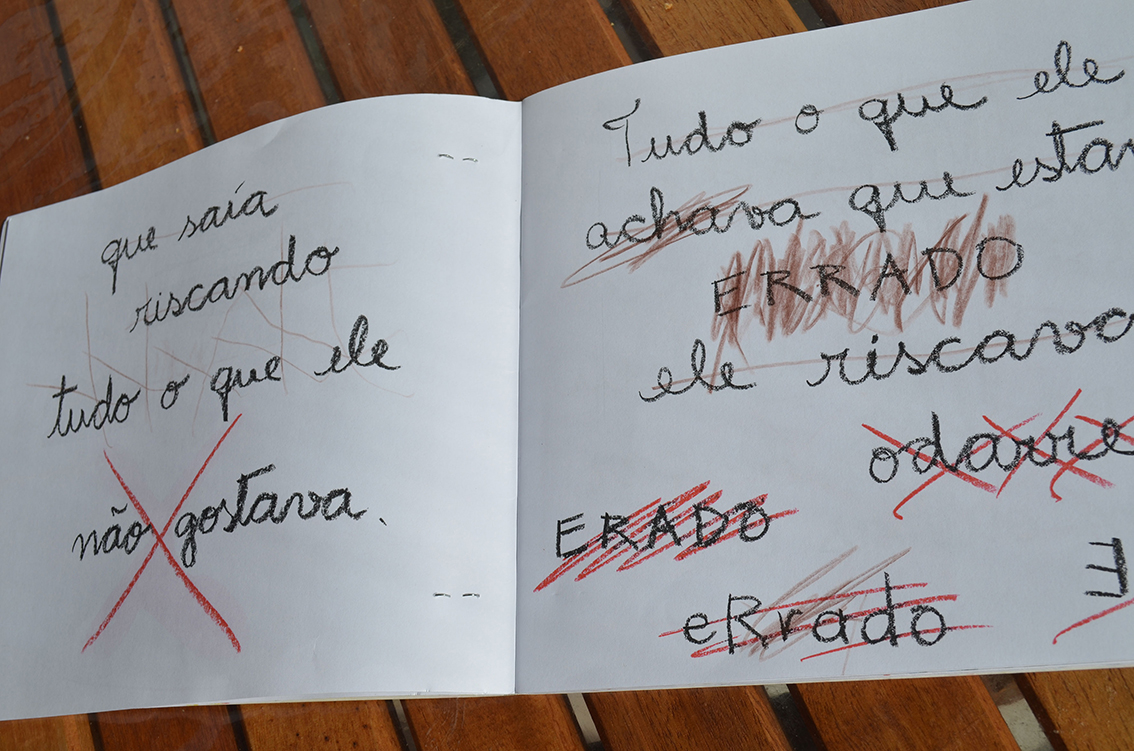 que saía
riscando
tudo o que ele
não gostava.
Tudo o que ele
achava que estav
ERRADO
ele riscava
odarre
ERADO
eRrado
E